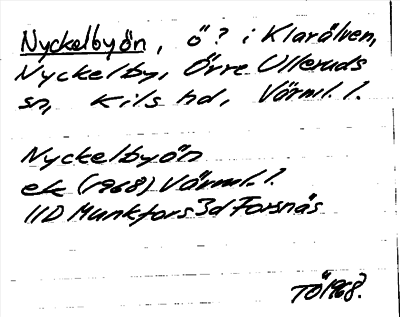 Nyckelbyön, ö? i Klarälven,
Nyckelby, Övre Ulleruds
sn, Kils hd, Värml. l.
Nyckelbyön
ek (1968) Värml. l.
11D Munkfors 3d Forsnäs
TÖ 1968.